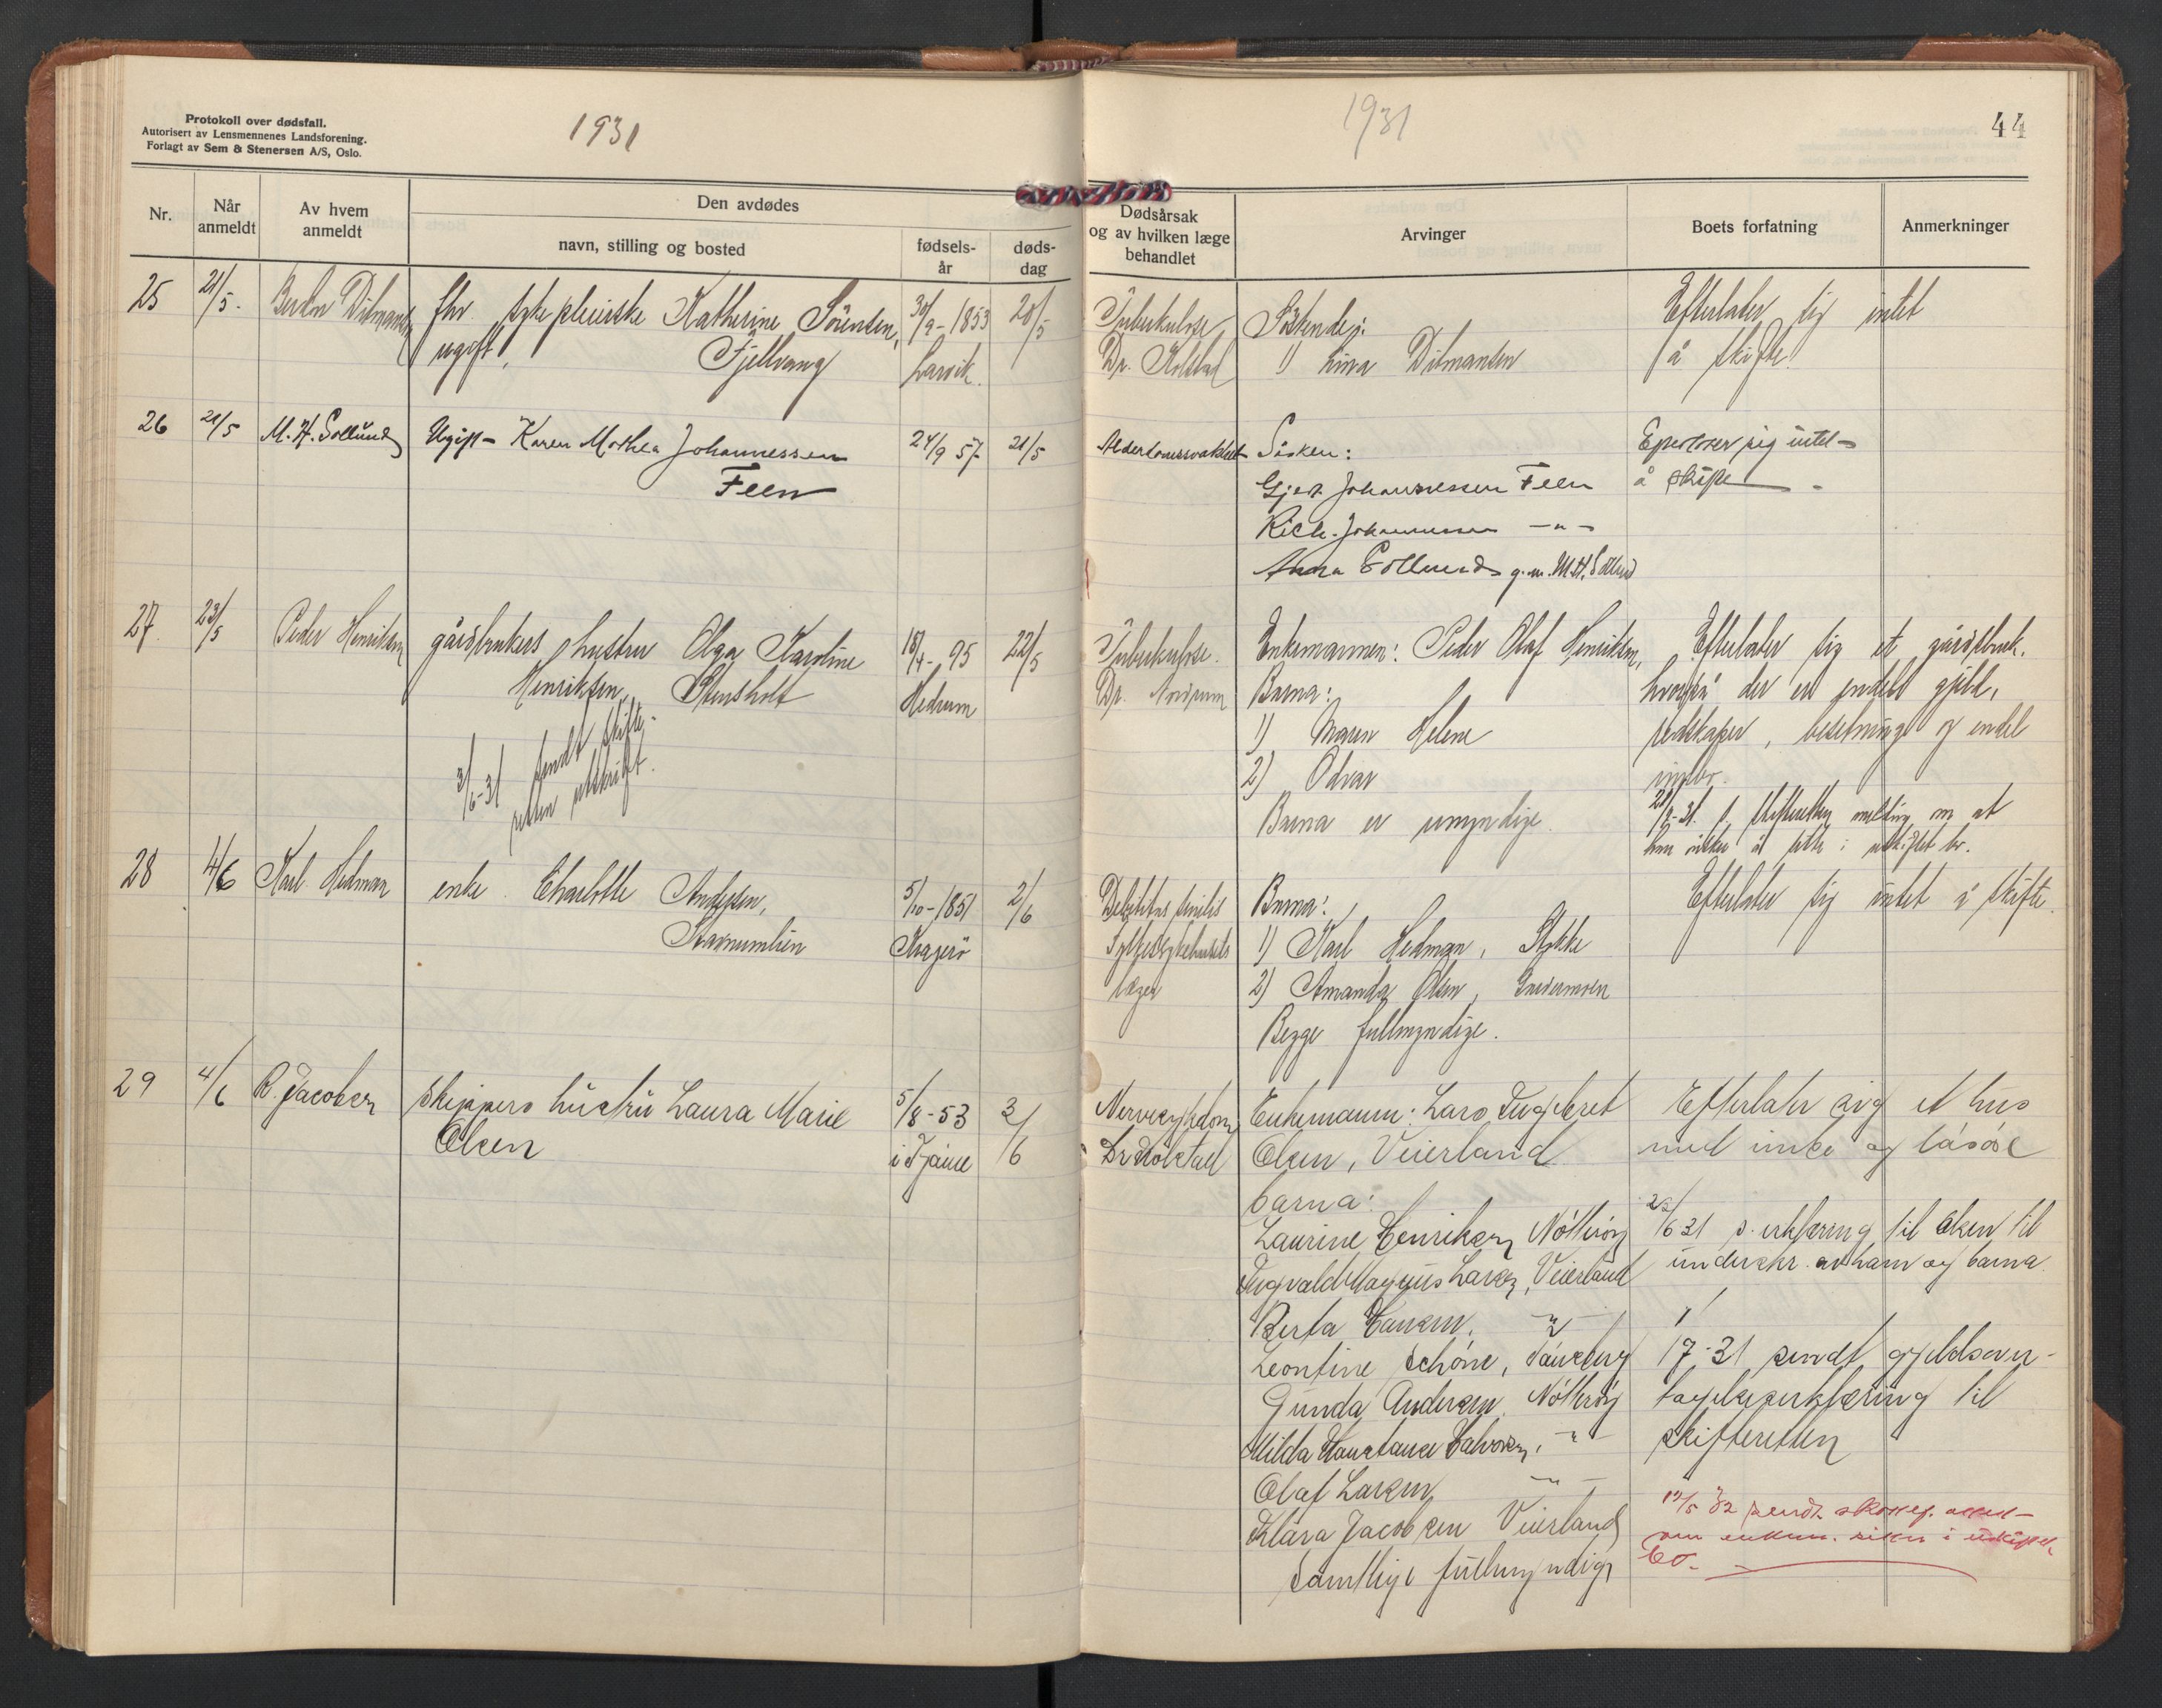 Protokoll over dødsfall.
Autorisert av Lensmennenes Landsforening.
Forlagt av Sem & Stenersen A/S, Oslo.
1931
Nr.
Når anmeldt
Av hvem anmeldt
Den avdødes
navn, stilling og bosted
fødsels-år
døds-dag
25 21/5. Ditmansen fhv. sykepleierske Katherine Sörensen, 30/9-1853 20/5
ugift, Fjellvang Larvik.
26 21/5 M. H. Sollund Ugift Karen Mathea Johannessen 24/9 57 21/5
Feen
27. 23/5 Peder Henriksen gårdbrukers hustru Olga Karoline 18/4-95 22/5
Henriksen, Stensholt Hedrum
3/6-31 sendt skifte-
retten utskrift.
28 4/6 Karl Hedman enke Charlotte Andersen, 5/10-1851 2/6
Kragerö
29 4/6 R. Jacobsen skippers hustru Laura Marie 5/8-53 3/6
Olsen i Tjøme
1931
44
Dødsårsak
og av hvilken læge
behandlet
Arvinger
Boets forfatning
Anmerkninger
Tuberkulose Söskende: Efterlater sig intet
Dr. Holstad 1) Lina Ditmansen å skifte.
Alderdomssvakhet Sösken: sig intet
Johannessen Feen å skifte
Rich. Johannessen — " —
Anna Sollund g. m. M. H. Sollund
Tuberkulose. Enkemannen: Peder Olaf Henriksen, Efterlater sig et gårdsbruk,
Dr. Barna: hvorpå der er endel gjeld,
1) Maren Helene redskaper, besetning og endel
2) Odvar innbo.
Barna er umyndige. skifteretten melding om at
han ønsker å sitte i uskiftet bo.
Debilitas senilis Barna: Efterlater sig intet å skifte.
Fylkessykehusets 1) Karl Hedman, Stokke
læger 2) Amanda Olsen,
Begge fullmyndige.
Nervesykdom Enkemann: Lars Ingebret Efterlater sig et hus
Dr Holstad Olsen, Veierland med innbo og løsøre
barna:
Laurine Henriksen Nötteröy 6 31 s. erklæring til Olsen til
Ingvald Magnus Larsen, Veierland underskr. av ham og barna
Berta Hansen, — " —
Leontine Schöne, Tønsberg 1/7-31 sendt gjeldsover-
Gunda Andersen, Nötteröy tagelseserklæring til
Milda Konstanse Halvorsen, — " — skifteretten
Olaf Larsen — " —
Klara Jacobsen Veierland 19/5 32 sendt
Samtlige fullmyndige om enkem. sitter i uskiftet
bo.